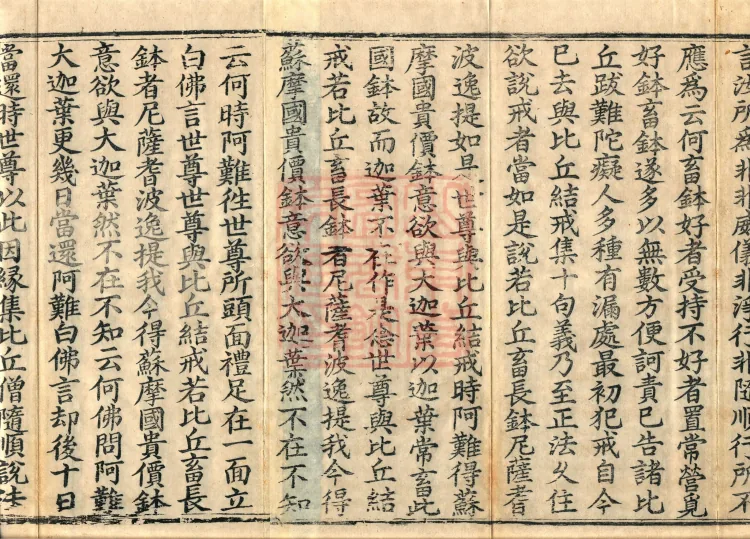 言汝所為非非威儀非淨行非隨順行所不
應為云何畜鉢好者受持不好者置常營覓
好鉢畜鉢遂多以無數方便訶責已告諸比
丘跋難陀癡人多種有漏處最初犯戒自今
已去與比丘結戒集十句義乃至正法久住
欲說戒者當如是說若比丘畜長鉢尼薩耆
波逸提如是世尊與比丘結戒時阿難得蘇
摩國貴價鉢意欲與大迦葉以迦葉常畜此
國鉢故而迦葉不在作是念世尊與比丘結
戒若比丘畜長鉢者尼薩耆波逸提我今得
蘇摩國貴價鉢意欲與大迦葉然不在不知
云何時阿難徃世尊所頭面禮足在一面立
白佛言世尊世尊與比丘結戒若比丘畜長
鉢者尼薩耆波逸提我今得蘇摩國貴價鉢
意欲與大迦葉然不在不知云何佛問阿難
大迦葉更幾日當還阿難白佛言却後十日
當還時世尊以此因緣集比丘僧隨順說法